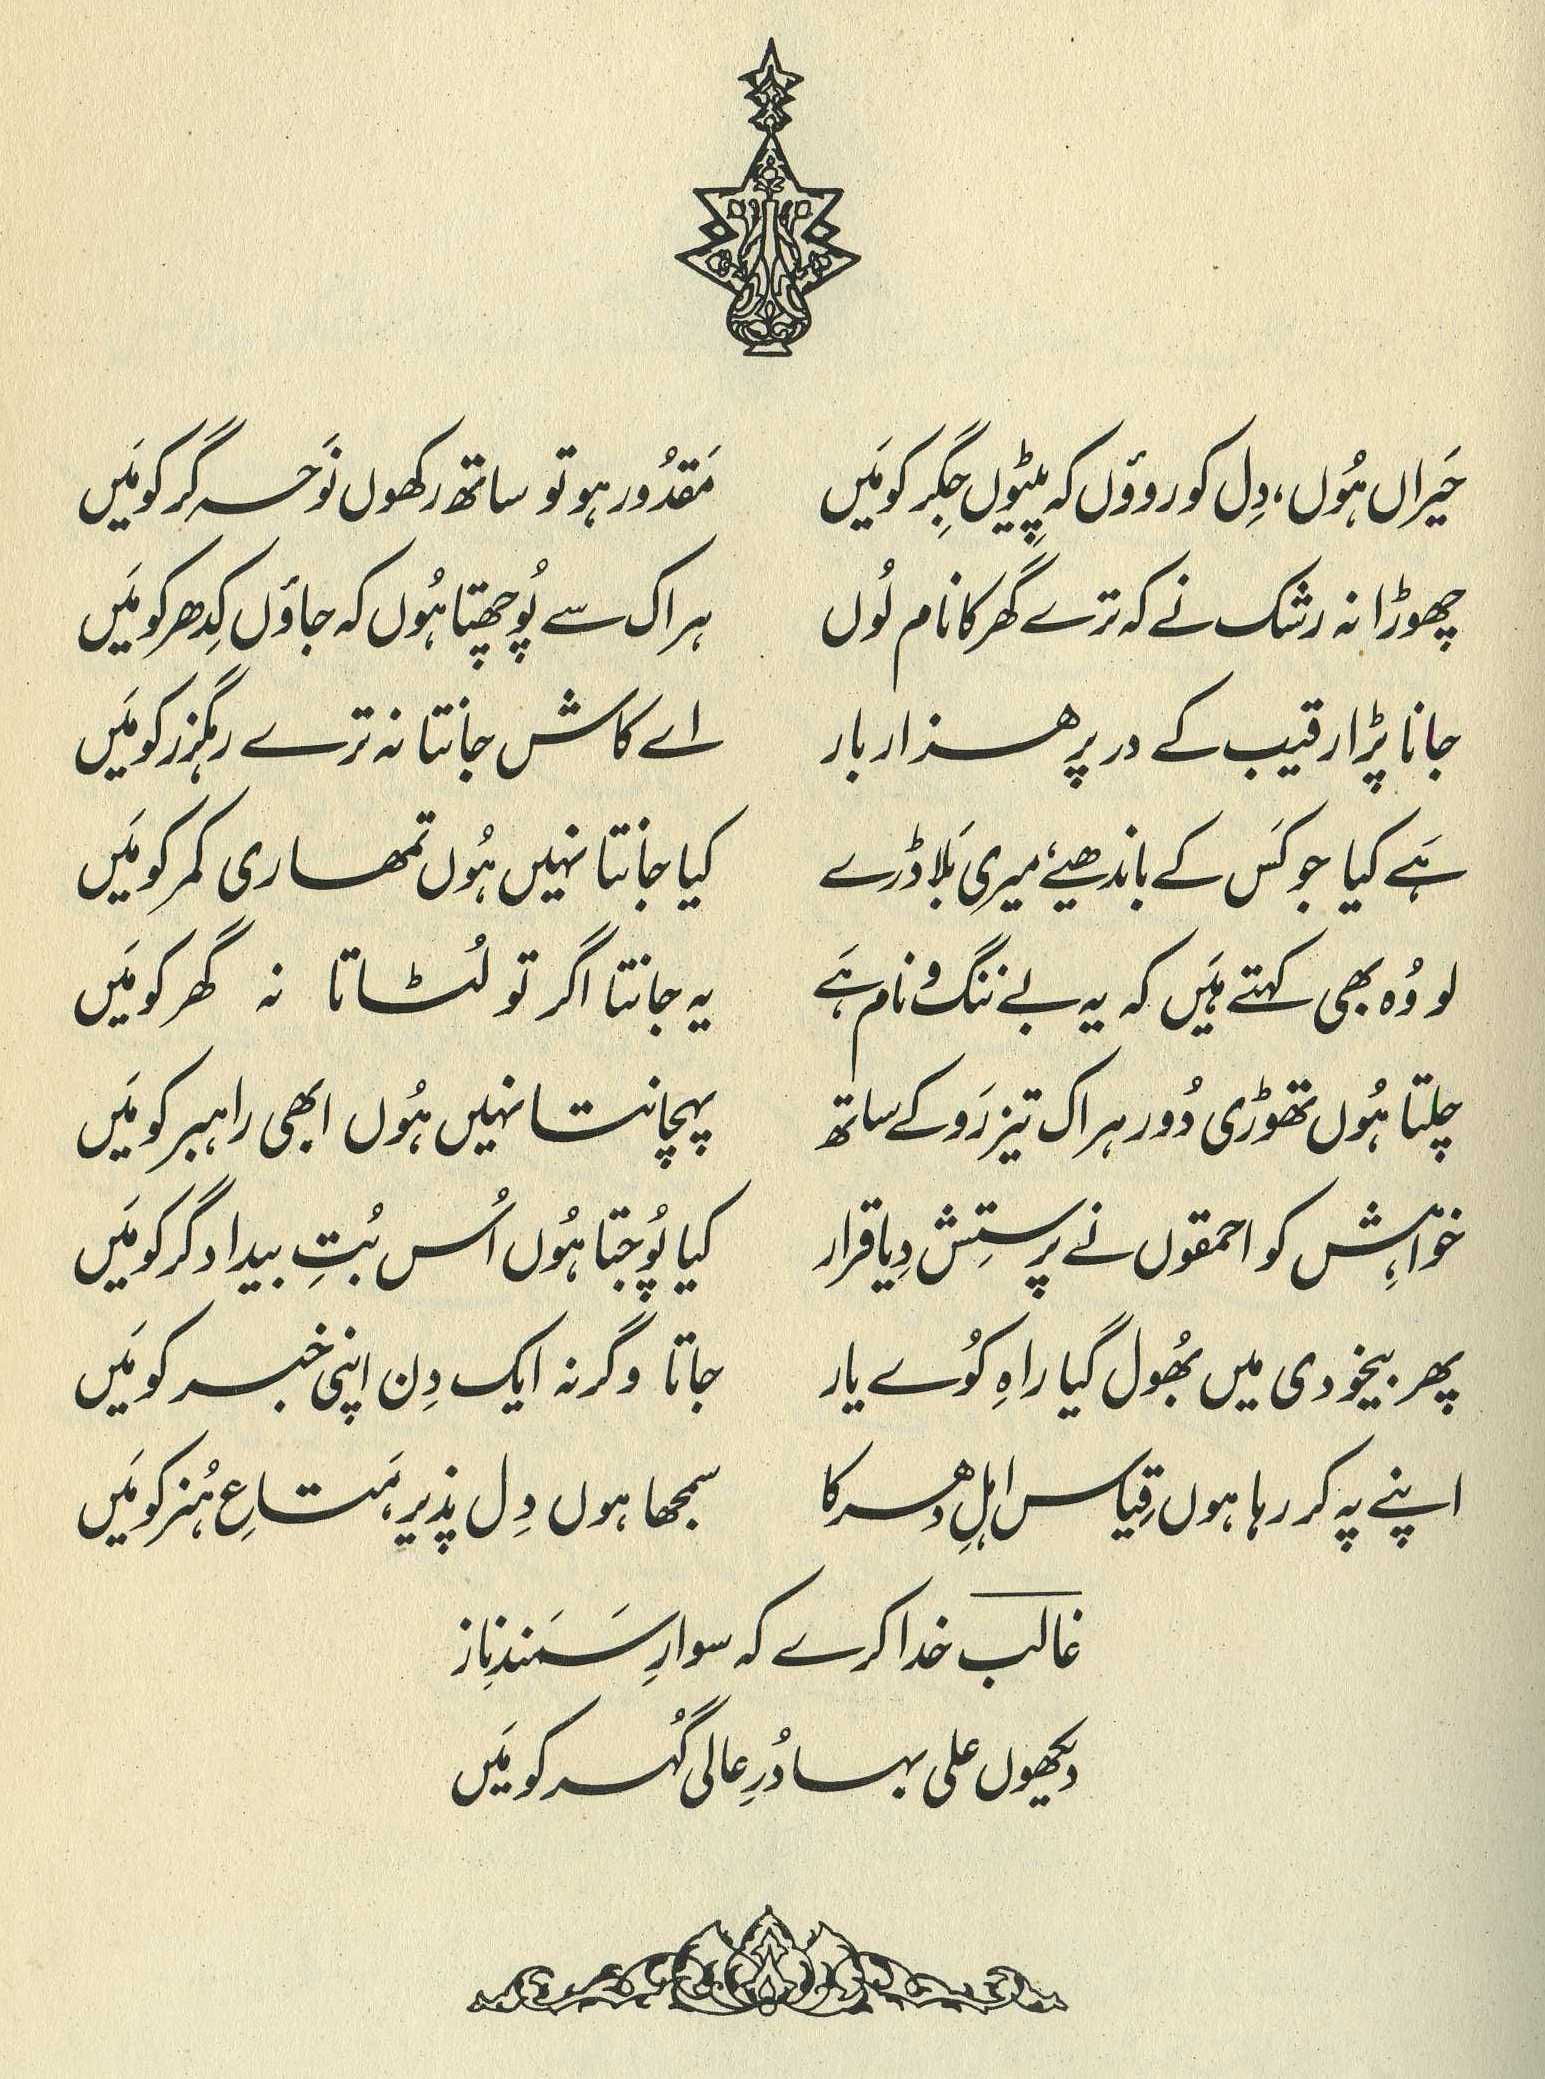 حَیراں ہُوں، دِل کو روؤں کہ پِیٹوں جِگر کو مَیں مَقدُور ہو تو ساتھ رکھوں نَوحہ گر کو مَیں
چھوڑا نہ رشک نے کہ ترے گھر کا نام لُوں ہر اک سے پُوچھتا ہُوں کہ جاؤں کِدھر کو مَیں
جانا پڑا رقیب کے در پر ہزار بار اے کاش جانتا نہ ترے رہگزر کو مَیں
ہَے کیا جو کَس کے باندھیے، میری بَلا ڈرے کیا جانتا نہیں ہُوں تمھاری کمر کو مَیں
لو وُہ بھی کہتے ہَیں کہ یہ بے ننگ و نام ہَے یہ جانتا اگر تو لُٹاتا نہ گھر کو مَیں
چلتا ہُوں تھوڑی دُور ہر اک تیز رَو کے ساتھ پہچانتا نہیں ہُوں ابھی راہبر کو مَیں
خواہِش کو احمقوں نے پرستِش دِیا قرار کیا پُوجتا ہُوں اُس بُتِ بیداد گر کو مَیں
پھر بیخودی میں بھُول گیا راہِ کُوے یار جاتا وگرنہ ایک دِن اپنی خبر کو مَیں
اپنے پہ کر رہا ہوں قِیاس اہلِ دہر کا سمجھا ہوں دِل پذیر، مَتاعِ ہُنر کو مَیں
غالب خدا کرے کہ سوارِ سَمندِ ناز
دیکھوں علی بہادُرِ عالی گُہر کو مَیں